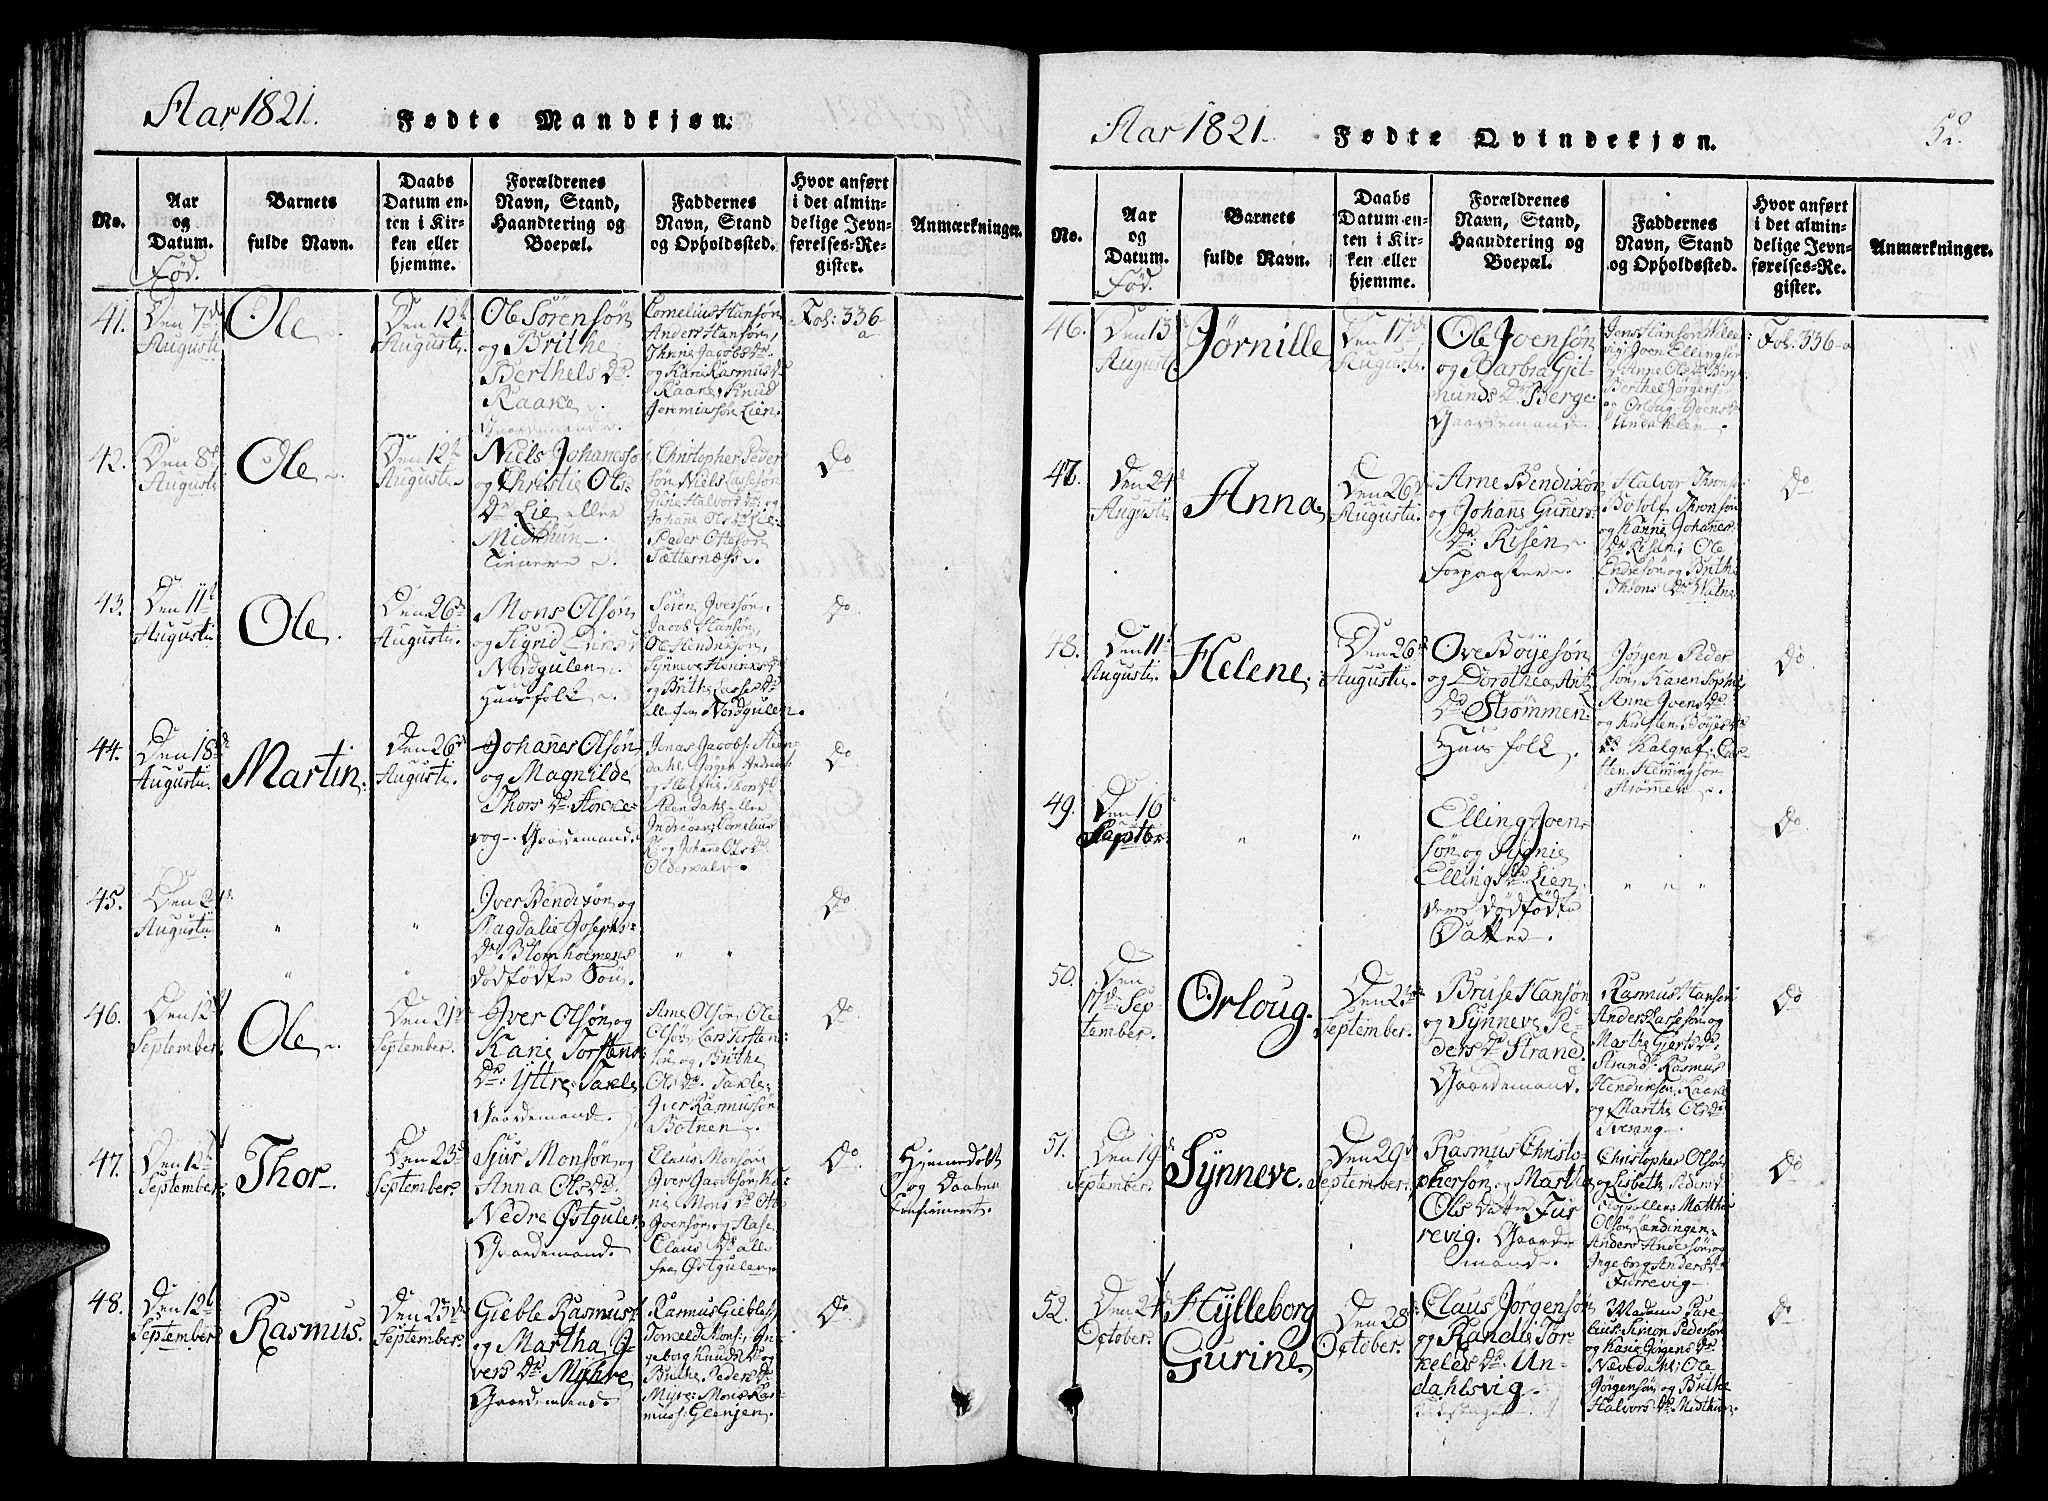 Aar 1821.
Fødte Mandkjøn.
No.
Aar
og
Datum.
Fød.
Barnets
fulde Navn.
Daabs
Datum en-
ten i Kir-
ken eller
hjemme.
Forældrenes
Navn, Stand,
Haandtering og
Boepæl.
Faddernes
Navn, Stand
og Opholdssted.
Hvor anført
i det almin-
delige Jevn-
førelses-Re-
gister.
Anmærkninger.
41.
Den 7de
Augusti
Ole
Den 12te
Augusti.
Ole Sörensön
og Brithe
Berthels Dr.
Kaake
Gaardemand.
Cornelius Hansön
Anders Hansön,
Jacobs Dr.
og Kari Rasmus Dr
Kaake, Knud
Jeremiasön Lien.
Fol: 336
a
42.
Den 8de
Augusti
Ole
Den 12te
Augusti
Niels Johanesö
og Christie Ols
Dr Lie eller
Midthun
Christopher Peder
sön Niels Lassesön
Halvors Dr og
Johane Ols Dr Lie
Peder Ottesön
Sætternæs
Do
43.
Den 11te
Augusti
Ole.
Den 26de
Augusti.
Mons Olsön
og Sigrid
Nordgulen
Huusfolk
Sören Iversön,
Jacob Hansön,
Ole Hendriksön,
Synneve Henriks Dr
og Brithe Lasses Dr
alle fra Nordgulen.
Do
44.
Den 18de
Augusti.
Martin.
Den 26de
Augusti.
Johanes Olsön
og Magnilde
Thors Dr.
vog. Gaardemand.
Jonas Jacobs.
dahl, Jörgen
og Thors Dr
eller
Cornelius
og Johane Ols Dr
Do
45.
Den 24de
Augusti
"
"
Iver Bendixön og
Magdalie Josephs
Dr Blomholmens
dödfödte Sön.
" "
Do
46.
Den 12te
September.
Ole
Den 21de
September.
Iver Olsön og
Karie Torstens
Dr: Yttre Takle
Gaardemand.
Arne Olsön, Ole
Olsön, Lars Torsten
sön og Brithe
Ols Dr. Takle
Iver Rasmussön
Botnen
Do
47.
Den 12te
September.
Thor
Den 23de
September.
Sjur Monsön og
Anna Ols Dr.
Nedre Östgulen
Gaardemand.
Claus Monsön
Iver Jacobsön, Ka-
rie Mons Dr
Joensön og Aase
Claus Dr alle
fra Östgulen.
Do
Hjemedöbt
og Daaben
Confirmeret.
48.
Den 12te
September
Rasmus.
Den 23de
September.
Gieble Rasmus
og Martha I-
vers Dr Myhre
Gaardemand
Rasmus Giebles
Mons: In-
geborg Knuds Dr og
Brithe Peders Dr
Myre: Mons Ras-
muss: Glenjen.
Do
Aar 1821.
Fødte Qvindekjøn.
52.
No.
Aar
og
Datum.
Fød.
Barnets
fulde Navn.
Daabs
Datum en-
ten i Kir-
ken eller
hjemme.
Forældrenes
Navn, Stand,
Haandtering og
Boepæl.
Faddernes
Navn, Stand
og Opholdssted.
Hvor anført
i det almin-
delige Jevn-
førelses-Re-
gister.
Anmærkninger.
46.
Den 13de
Augusti.
Jörnille
Den 17de
Augusti.
Ole Joensön
og Barbra Gjel-
munds Dr Berge
Gaardemand.
Jens Hansön
Joen Ellingsön
Anne Ols Dr Berge
Berthe Jörgens
og Orloug Joens Dr
Undahlen
Fol. 336 a
47.
Den 24de
Augusti
Anna
Den 26de
Augusti.
Arne Bendixön
og Johane Guners
Dr: Risen
Forpagter
Halvor Thronsön
Botolf Thronsön
og Karie Johanes
Dr Risen; Ole
Endresön og Brithe
Throns Dr Watne
Do
48.
Den 11te
Augusti.
Helene.
Den 26de
Augusti.
Ove Böyesön
og Dorothea
Dr Strömmen
Huusfolk.
Jörgen Peder
sön, Karen Sophie
Anne Ivers Dr
og Kirsten Böyes Dr
Kalgraf: Car-
sten Flemingsön
Strömmen
Do
49.
Den 16
Septbr.
"
"
Elling Joen-
sön og
Ellings Dr Lien
deres dödfödte
Datter.
" " "
Do
50.
Den
17de Sep
tember.
Orloug.
Den 23de
September.
Bruse Hansön
og Synneve Pe-
ders Dr Strand.
Gaardemand.
Rasmus Hansön
Anders Lassesön og
Marthe Gierts Dr.
Strand: Rasmus
Hendriksön Kaake
og Marthe Ols Dr
Do
51.
Den 19de
September.
Synneve.
Den 29de
September.
Rasmus Christo-
phersön, og Marthe
Ols Datter Fur
revig. Gaarde
mand.
Christopher Olsön
og Lisbeth Peders Dr
Matthias
Olsön Lændingen
Anders Andersön og
Ingeborg Anders Dr
Furrevig
Do
52.
Den 24de
October.
Hylleborg
Gurine.
Den 28de
October.
Claus Jörgensön
og Randi Tor-
kelds Dr: Un-
dahlsvig.
Madme
Simon Pedersön
og Karie Jörgens Dr
Nævedahl: Ole
Jörgensön og Brithe
Halvors Dr. Midthun.
Do